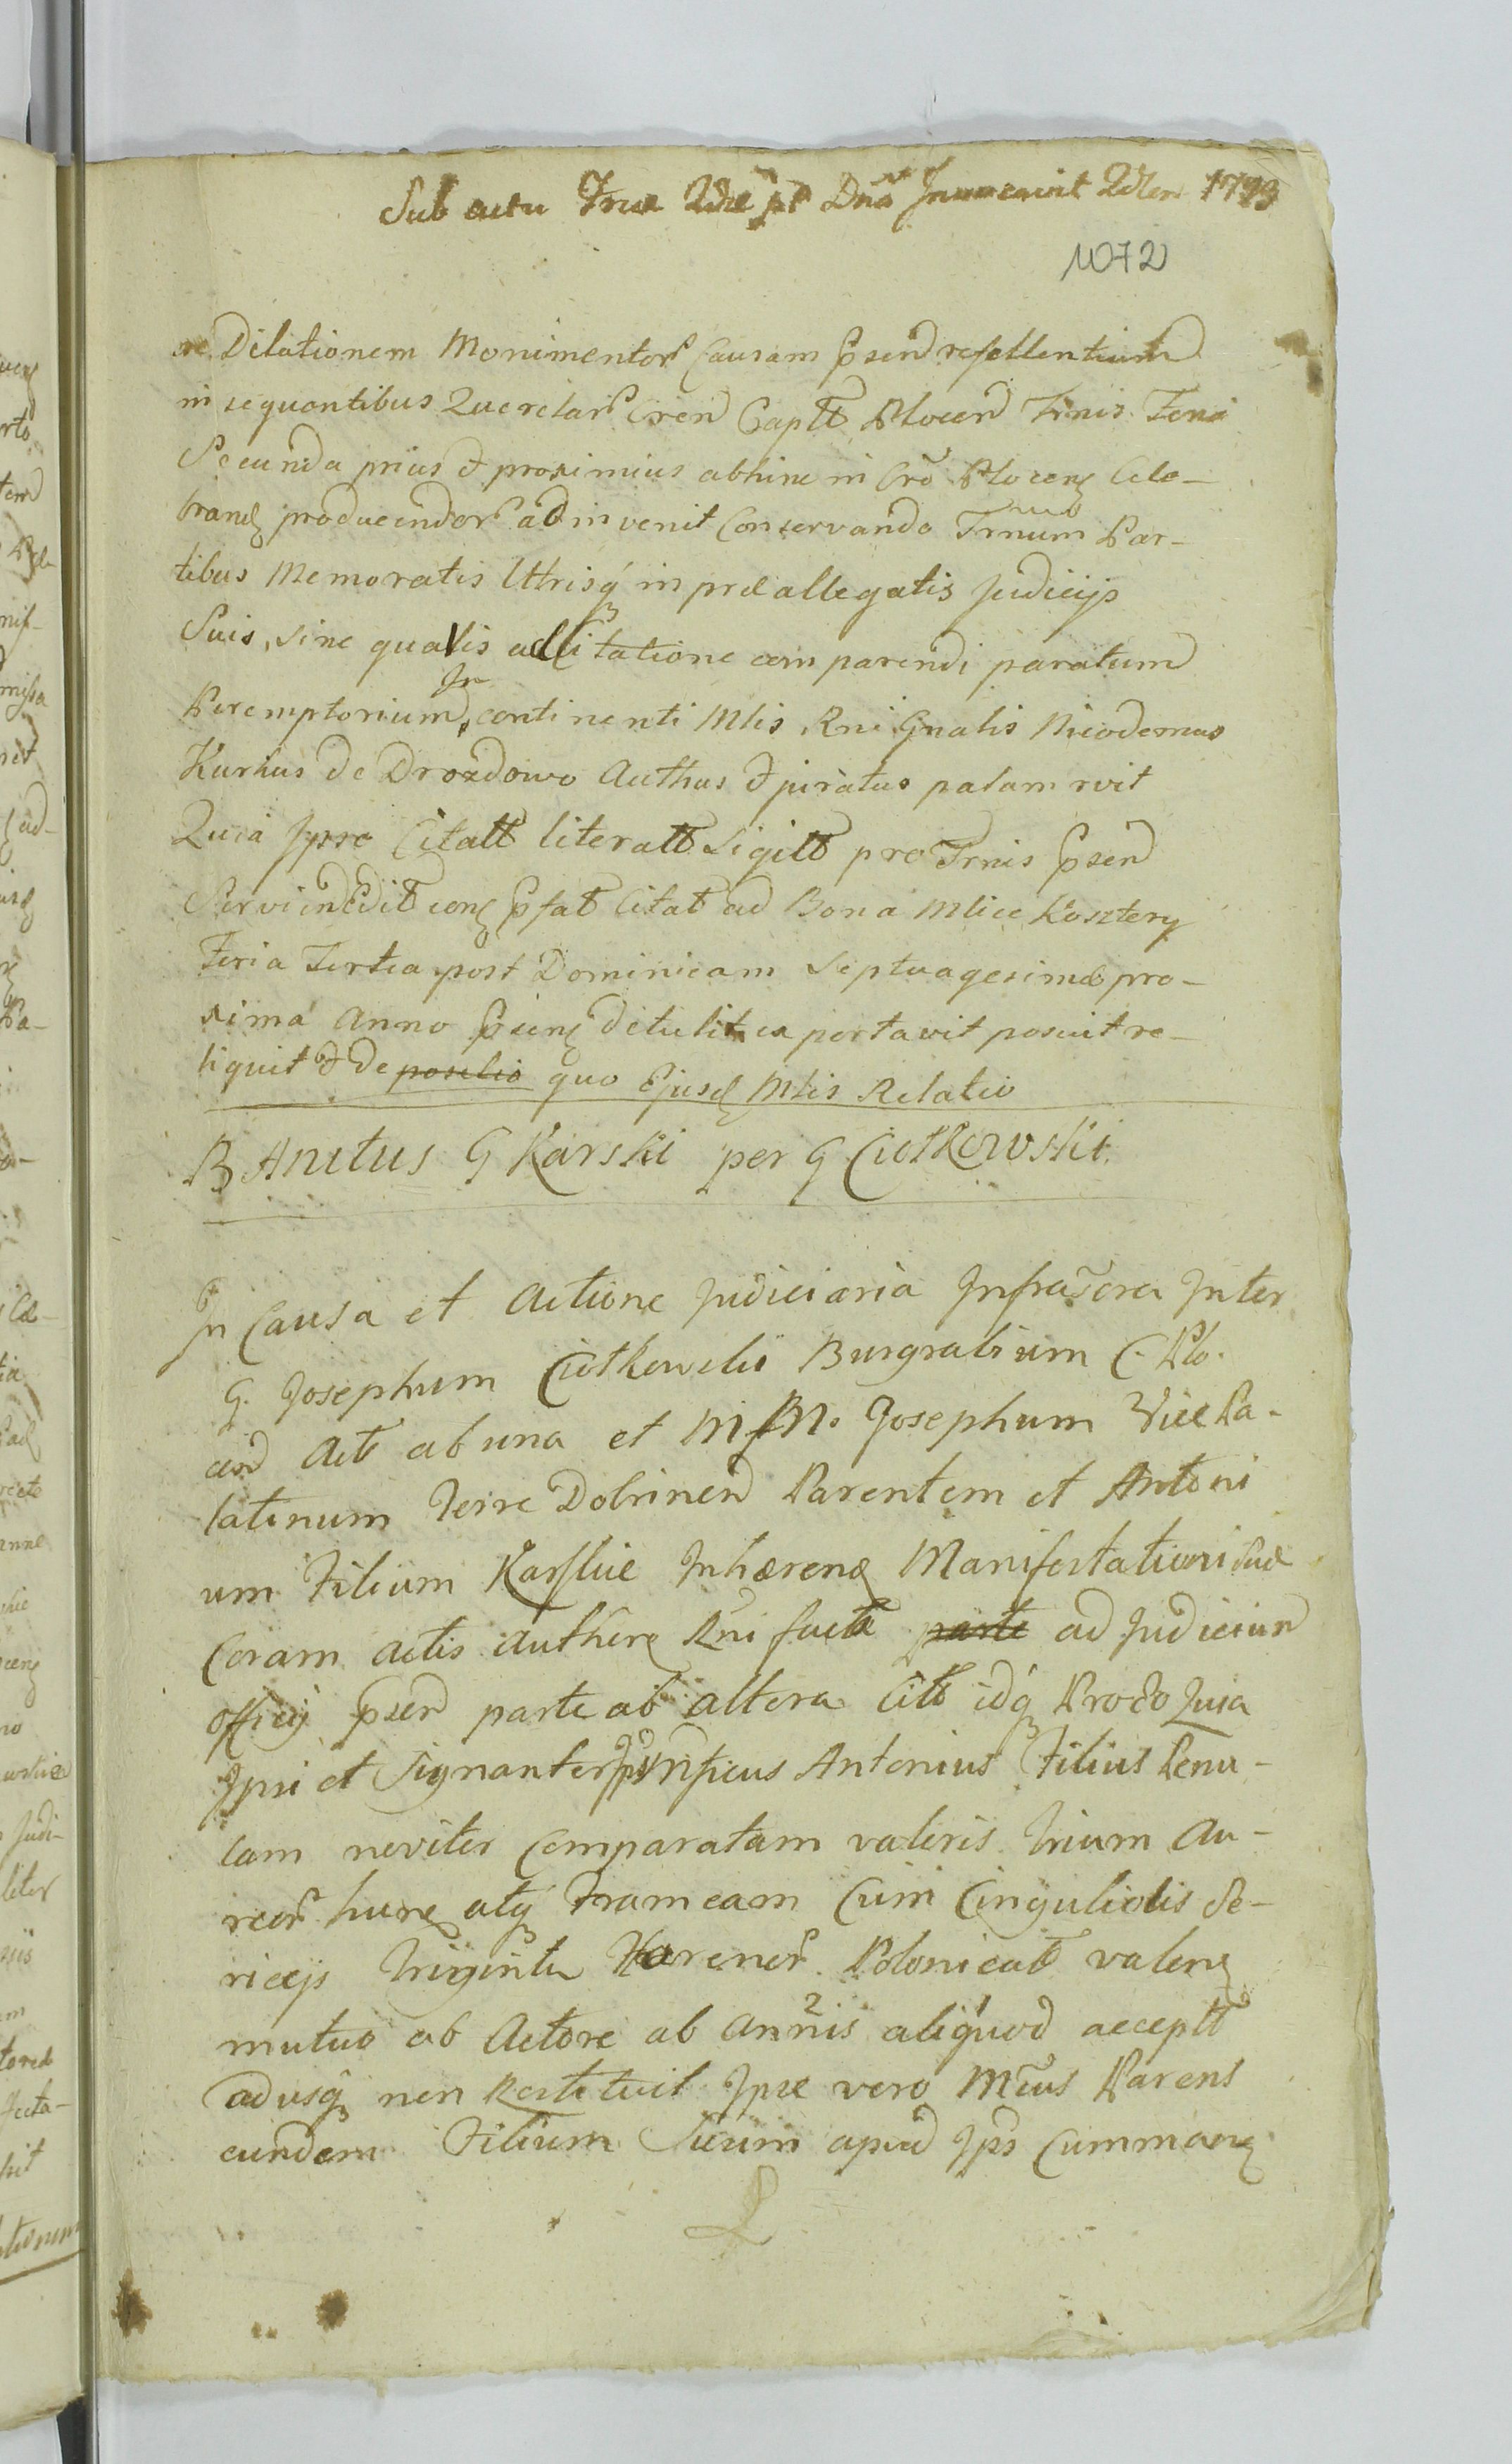 Sub actu Feriae 2dae pt Dnā Invocavit 2dlen 1793
1072
ne Dilationem Monimentor Causam Psend refellentium
in sequentibus Querelar Cren Captt Plocen Trnis Feria
Secunda prius & proximius abhinc in Crō Plocens Cele-
brand producendor ad invenit Conservando Trnum Par-
tibus Memoratis Utrisq in praeallegatis Judicijs
Suis, sine quavis adCitatione comparendi paratum
Peremptorium, In continenti Mlis Rni Gnalis Nicodemus
Kurkus de Drozdowo Authus & juratus palam rvit
Quia Ipse Citatt literatt Sigilt pro Trnis Psend
Servien Edit cons Pfat Citat ad Bona Mlice Kosztery
Feria Tertia post Dominicam Septuagesimae pro-
xima Anno Psiens detulit exportavit posuit re-
liquit & de posilio quo Ejusd Mlis Relatio
B Anitus G Karski per G Ciotkowski
In Causa et Actione Judiciaria Infrascra Inter
G. Josephum Ciotkowski Burgrabium C. Plo.
cen Act ab una et M M. Josephum Vice Pa-
latinum Terre Dobrinen Parentem et Antoni
um Filium Karskie Inhaerens Manifestationi suae
Coram Actis Authen Rni factae parte ad Judicium
officij psen parte ab altera Citt idq Prodo Quia
Ipsi et Signanter Ipse Mficus Antonius Filius Penu-
lam noviter Comparatam valoris Trium Au-
reor hunc atq Frameam Cum Cinguliolis Se-
ricejs Triginta Florenor Polonicat valens
mutuo ab Actore ab annis 2 aliquod acceptt
adusq non Restituit Ipse vero Mcus Parens
eundem Filium Suum apud Ips Cummans